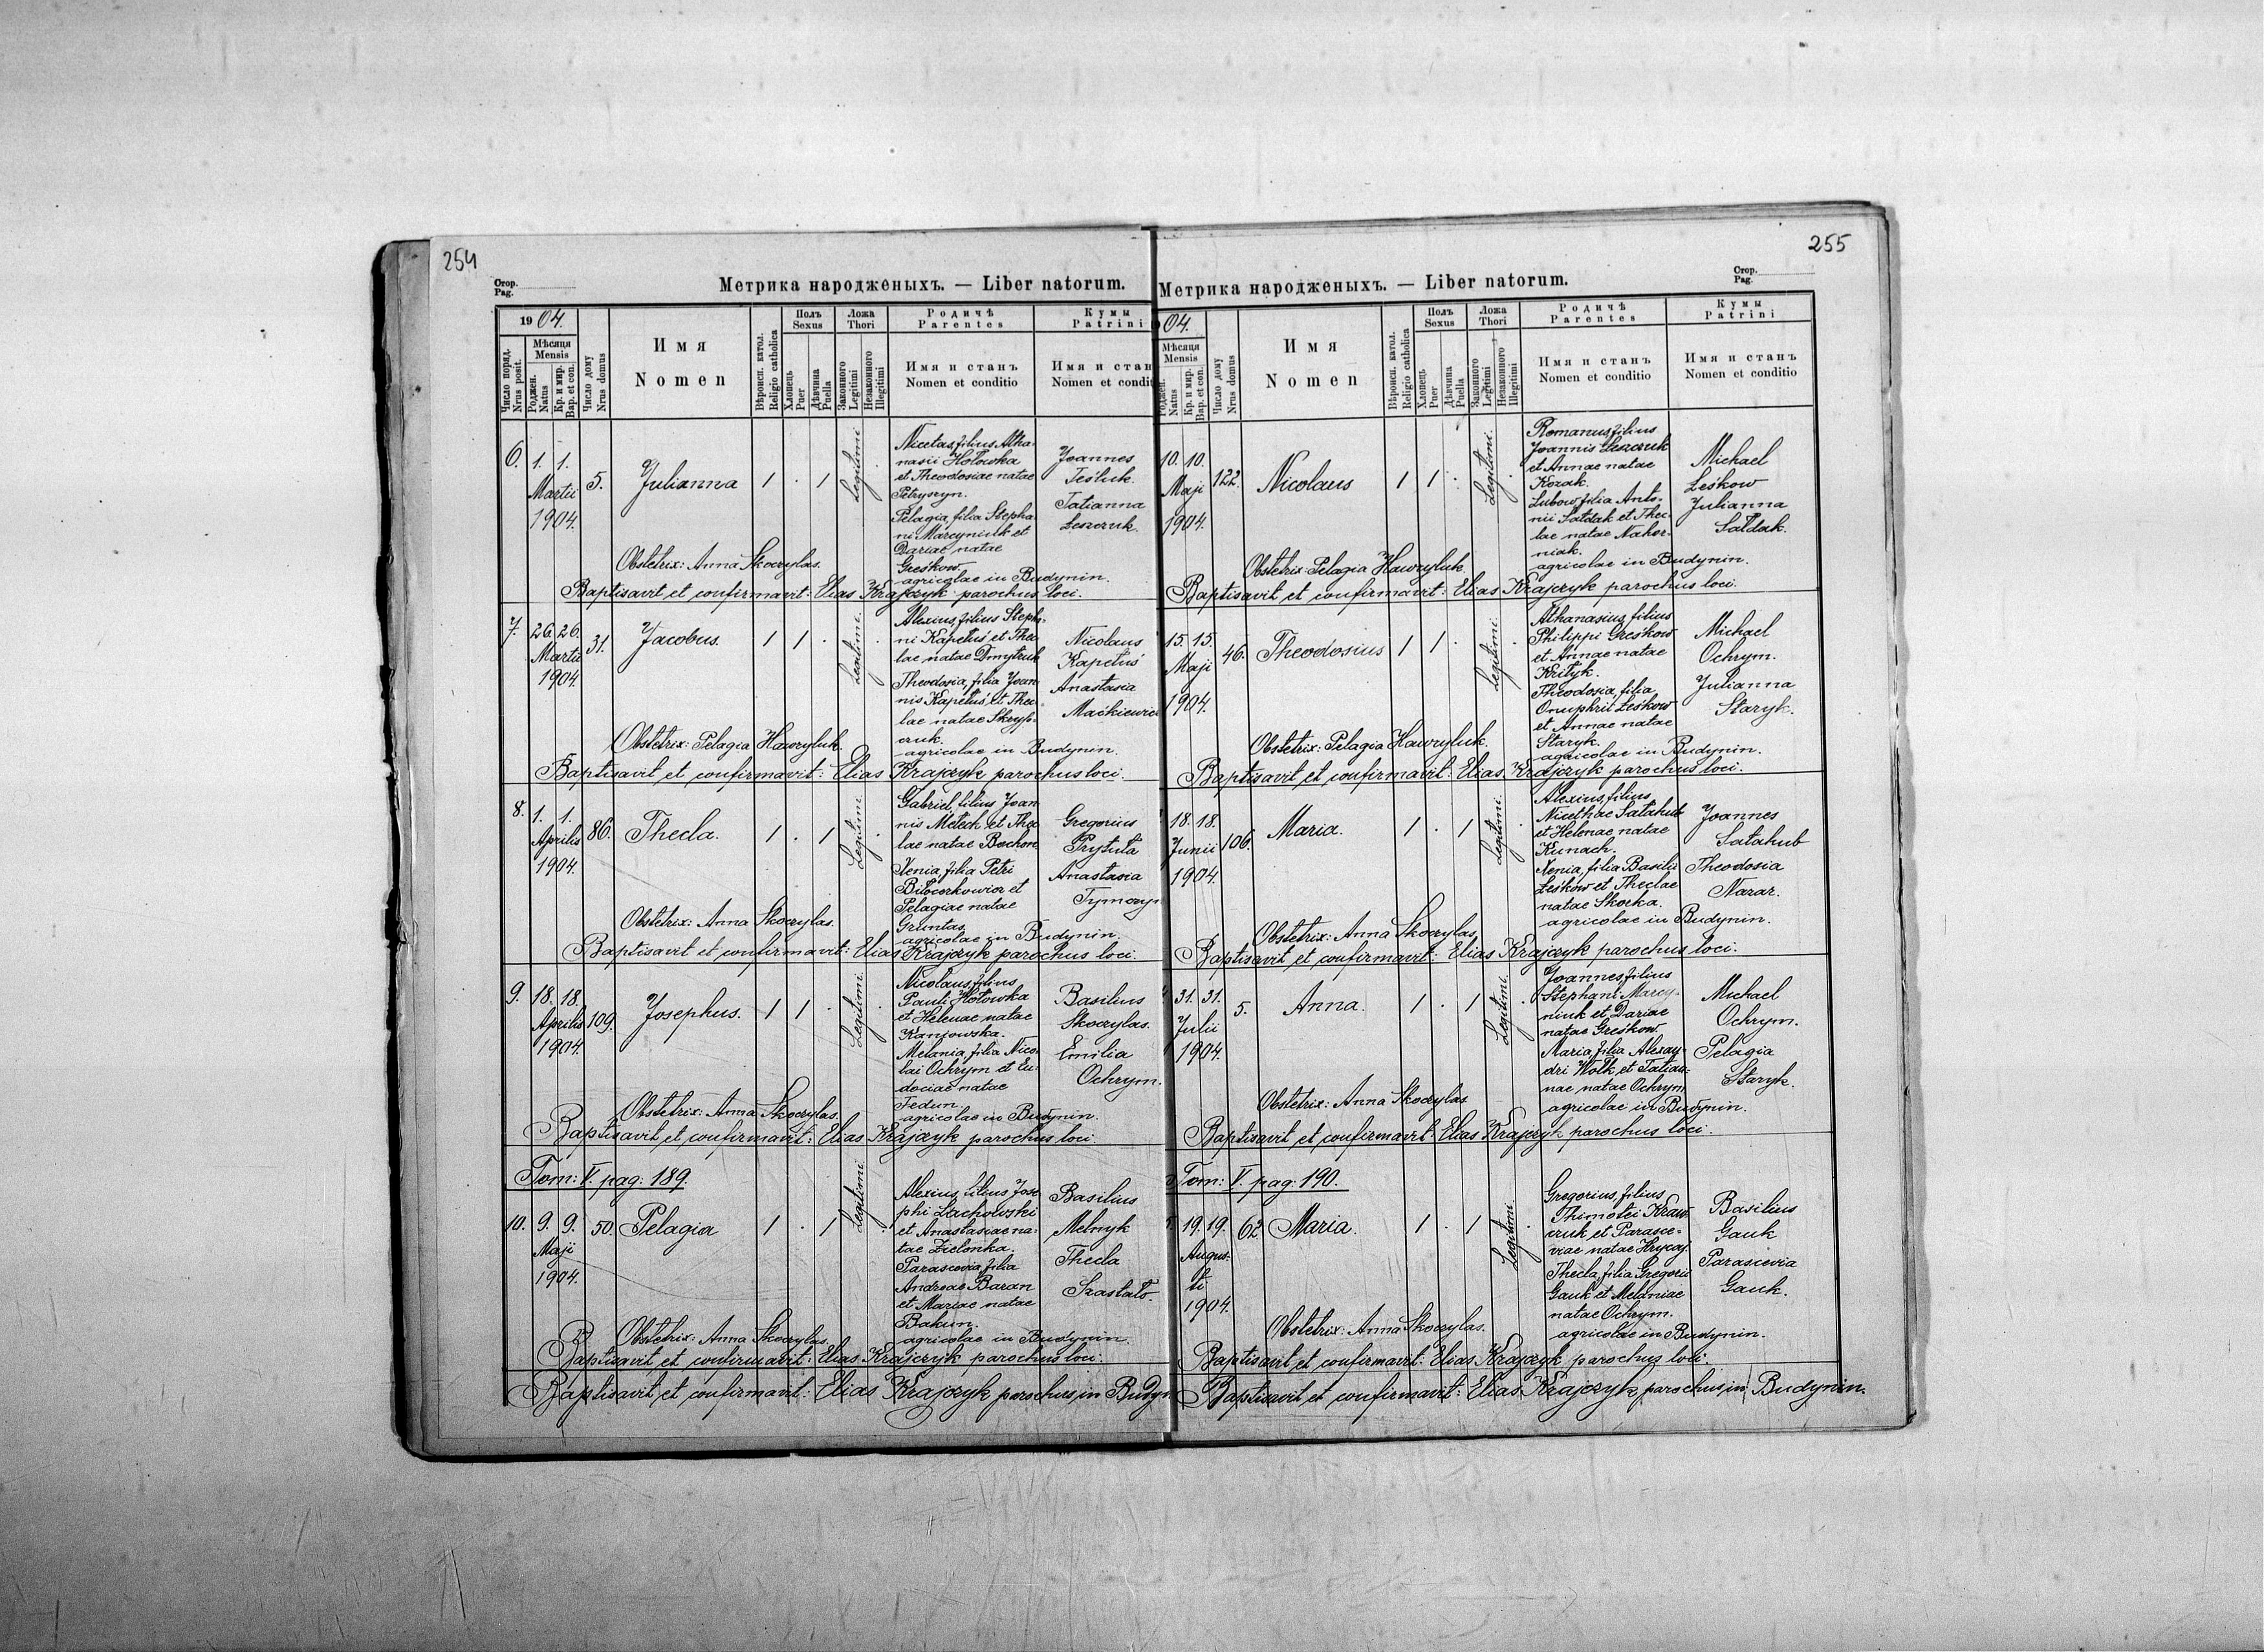 254
Стор.
Pag.
Метрика народженыхъ. — Liber natorum.
1904.
Число поряд.
Nrus posit.
Мѣсяця
Mensis
Роджен.
Natus
Кр. и мир.
Bap. et con.
Число дому
Nrus domus
Имя
Nomen
Вѣроисп. катол.
Religio catholica
Полъ
Sexus
Хлопець
Puer
Дѣвчина
Puella
Ложа
Thori
Законного
Legitimi
Незаконного
Illegitimi
Родичѣ
Parentes
Имя и станъ
Nomen et conditio
Кумы
Patrini
Имя и стан
Nomen et condit
6. 1. 1. Martii 1904. 5. Julianna 1 . 1 Legitimi .
Nicetas, filius Atha-
nasii Hołowka
et Theodosiae natae
Petryszyn.
Pelagia, filia Stepha-
ni Marcyniuk et
Dariae natae
Greśkow
agricolae in Budynin.
Joannes
Teśluk.
Tatianna
Leszczuk.
Obstetrix: Anna Skoczylas.
Baptisavit et confirmavit: Elias Krajczyk parochus loci.
7. 26. 26. Martii 1904. 31. Jacobus. 1 1 . Legitimi .
Alexius, filius Stepha-
ni Kapeluś et Thec-
lae natae Dmytruk
Theodosia, filia Joan-
nis Kapeluś et Thec-
lae natae Skryp-
czuk.
agricolae in Budynin.
Nicolaus
Kapeluś
Anastasia
Maćkiewicz
Obstetrix: Pelagia Hawryluk.
Baptisavit et confirmavit: Elias Krajczyk parochus loci.
8. 1. 1. Aprilis 1904. 86. Thecla. 1 . 1 Legitimi .
Gabriel, filius Joan-
nis Melech et Thec-
lae natae
Xenia, filia Petri
et
Pelagiae natae
Gruntas
agricolae in Budynin.
Gregorius
Prytuła
Anastasia
Obstetrix: Anna Skoczylas.
Baptisavit et confirmavit: Elias Krajczyk parochus loci.
9. 18. 18. Aprilis 1904. 109. Josephus. 1 1 . Legitimi .
Nicolaus, filius
Pauli Hołowka
et Helenae natae
Kaniowska.
Melania, filia Nico-
lai Ochrym et Eu-
dociae natae
Fedun.
agricolae in Budynin.
Basilius
Skoczylas.
Emilia
Ochrym.
Obstetrix: Anna Skoczylas.
Baptisavit et confirmavit: Elias Krajczyk parochus loci.
Tom: V. pag: 189.
10. 9. 9. Maji 1904. 50. Pelagia 1 . 1 Legitimi .
Alexius, filius Jose-
phi Lachowski
et Anastasiae na-
tae Zielonka.
Parascevia, filia
Andreae Baran
et Mariae natae
Bakun.
agricolae in Budynin.
Basilius
Melnyk
Thecla
Szastało.
Obstetrix: Anna Skoczylas.
Baptisavit et confirmavit: Elias Krajczyk parochus loci.
Baptisavit et confirmavit: Elias Krajczyk parochus in Budyn
255
Стор.
Pag.
Метрика народженыхъ. — Liber natorum.
04.
Мѣсяця
Mensis
Роджен.
Natus
Кр. и мир.
Bap. et con.
Число дому
Nrus domus
Имя
Nomen
Вѣроисп. катол.
Religio catholica
Полъ
Sexus
Хлопець
Puer
Дѣвчина
Puella
Ложа
Thori
Законного
Legitimi
Незаконного
Illegitimi
Родичѣ
Parentes
Имя и станъ
Nomen et conditio
Кумы
Patrini
Имя и станъ
Nomen et conditio
10. 10. Maji 1904. 122. Nicolaus 1 1 . Legitimi. .
Romanus, filius
Joannis Leszczuk
et Annae natae
Kozak.
Lubow, filia Anto-
nii Sałdak et Thec-
lae natae Nahor-
niak.
agricolae in Budynin.
Michael
Leśkow
Julianna
Sałdak.
Obstetrix: Pelagia Hawryluk.
Baptisavit et confirmavit: Elias Krajczyk parochus loci.
15. 15. Maji 1904. 46. Theodosius 1 1 . Legitimi. .
Athanasius, filius
Philippi Greśkow
et Annae natae
Krityk.
Theodosia, filia
Onuphrii Leśkow
et Annae natae
Staryk.
agricolae in Budynin.
Michael
Ochrym.
Julianna
Staryk.
Obstetrix: Pelagia Hawryluk.
Baptisavit et confirmavit: Elias Krajczyk parochus loci.
18. 18. Junii 1904. 106. Maria. 1 . 1 Legitimi. .
Alexius, filius
Nicethae Sałahub
et Helenae natae
Kunach.
Xenia, filia Basilii
Leśkow et Theclae
natae Skocka.
agricolae in Budynin.
Joannes
Sałahub
Theodosia
Nazar.
Obstetrix: Anna Skoczylas
Baptisavit et confirmavit: Elias Krajczyk parochus loci.
31. 31. Julii 1904. 5. Anna. 1 . 1 Legitimi. .
Joannes, filius
Stephani Marcy-
niuk et Dariae
natae Greśkow.
Maria, filia Alexan-
dri Wołk et Tatian-
nae natae Ochrym
agricolae in Budynin.
Michael
Ochrym.
Pelagia
Staryk.
Obstetrix: Anna Skoczylas
Baptisavit et confirmavit: Elias Krajczyk parochus loci.
Tom: V. pag: 190.
19. 19. Augus-
ti
1904. 62. Maria. 1 . 1 Legitimi. .
Gregorius, filius
Thimotei Kraw-
czuk et Parasce-
viae natae Hrycaj.
Thecla, filia Gregorii
Gauk et Melaniae
natae Ochrym.
agricolae in Budynin.
Basilius
Gauk
Parascevia
Gauk.
Obstetrix: Anna Skoczylas.
Baptisavit et confirmavit: Elias Krajczyk parochus loci.
Baptisavit et confirmavit: Elias Krajczyk parochus in Budynin.